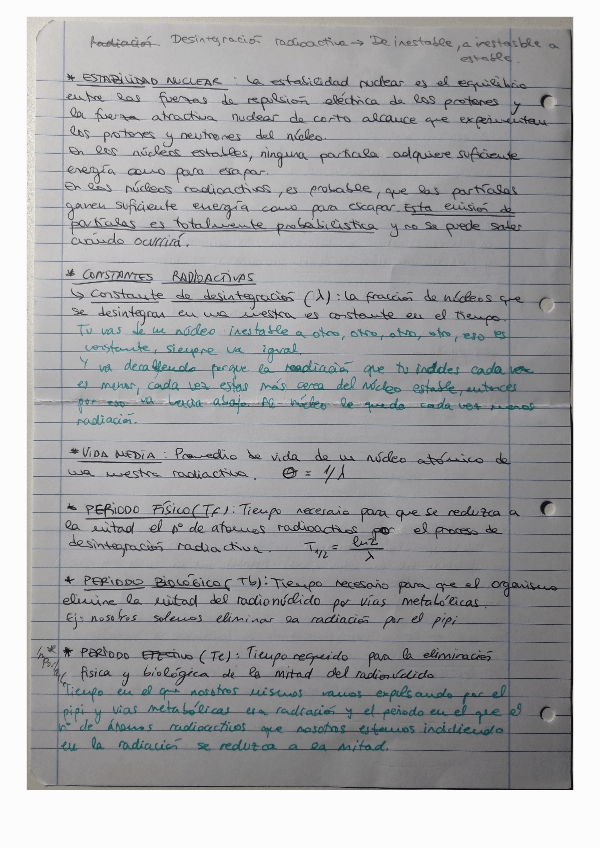 Radiación. Desintegración radioactiva → De inestable, a inestable a
estable.
* ESTABILIDAD NUCLEAR: La estabilidad nuclear es el equilibrio
entre las fuerzas de repulsión eléctrica de los protones y
la fuerza atractiva nuclear de corto alcance que experimentan
los protones y neutrones del núcleo.
En los núcleos estables, ninguna partícula adquiere suficiente
energía como para escapar.
En los núcleos radioactivos, es probable, que las partículas
ganen suficiente energía como para escapar. Esta emisión de
partículas es totalmente probabilística y no se puede saber
cuándo ocurrirá.
* CONSTANTES RADIOACTIVAS
↳ Constante de desintegración (λ): La fracción de núcleos que
se desintegran en una muestra es constante en el tiempo.
Tu vas de un núcleo inestable a otro, otro, otro, otro, eso es
constante, siempre va igual.
Y va decallendo porque la readiación que tu incides cada vez
es menor, cada vez estas más cerca del núcleo estable, entonces
por eso va hacia abajo. Al núcleo le queda cada vez menos
radiación.
* VIDA MEDIA: Promedio de vida de un núcleo atómico de
una muestra radiactiva. Θ = 1/λ
* PERIODO FÍSICO (Tf): Tiempo necesario para que se reduzca a
la mitad el nº de átomos radioactivos por el proceso de
desintegración radiactiva. T1/2 = ln2/λ
* PERIODO BIOLÓGICO (Tb): Tiempo necesario para que el organismo
elimine la mitad del radionúclido por vías metabólicas.
Ej: nosotros solemos eliminar la radiación por el pipi
* PERÍODO EFECTIVO (Te): Tiempo requerido para la eliminación
física y biológica de la mitad del radionúclido
Tiempo en el que nosotros mismos vamos expulsando por el
pipi y vías metabólicas esa radiación y el periodo en el que el
nº de átomos radioactivos que nosotros estamos incidiendo
en la radiación se reduzca a la mitad.